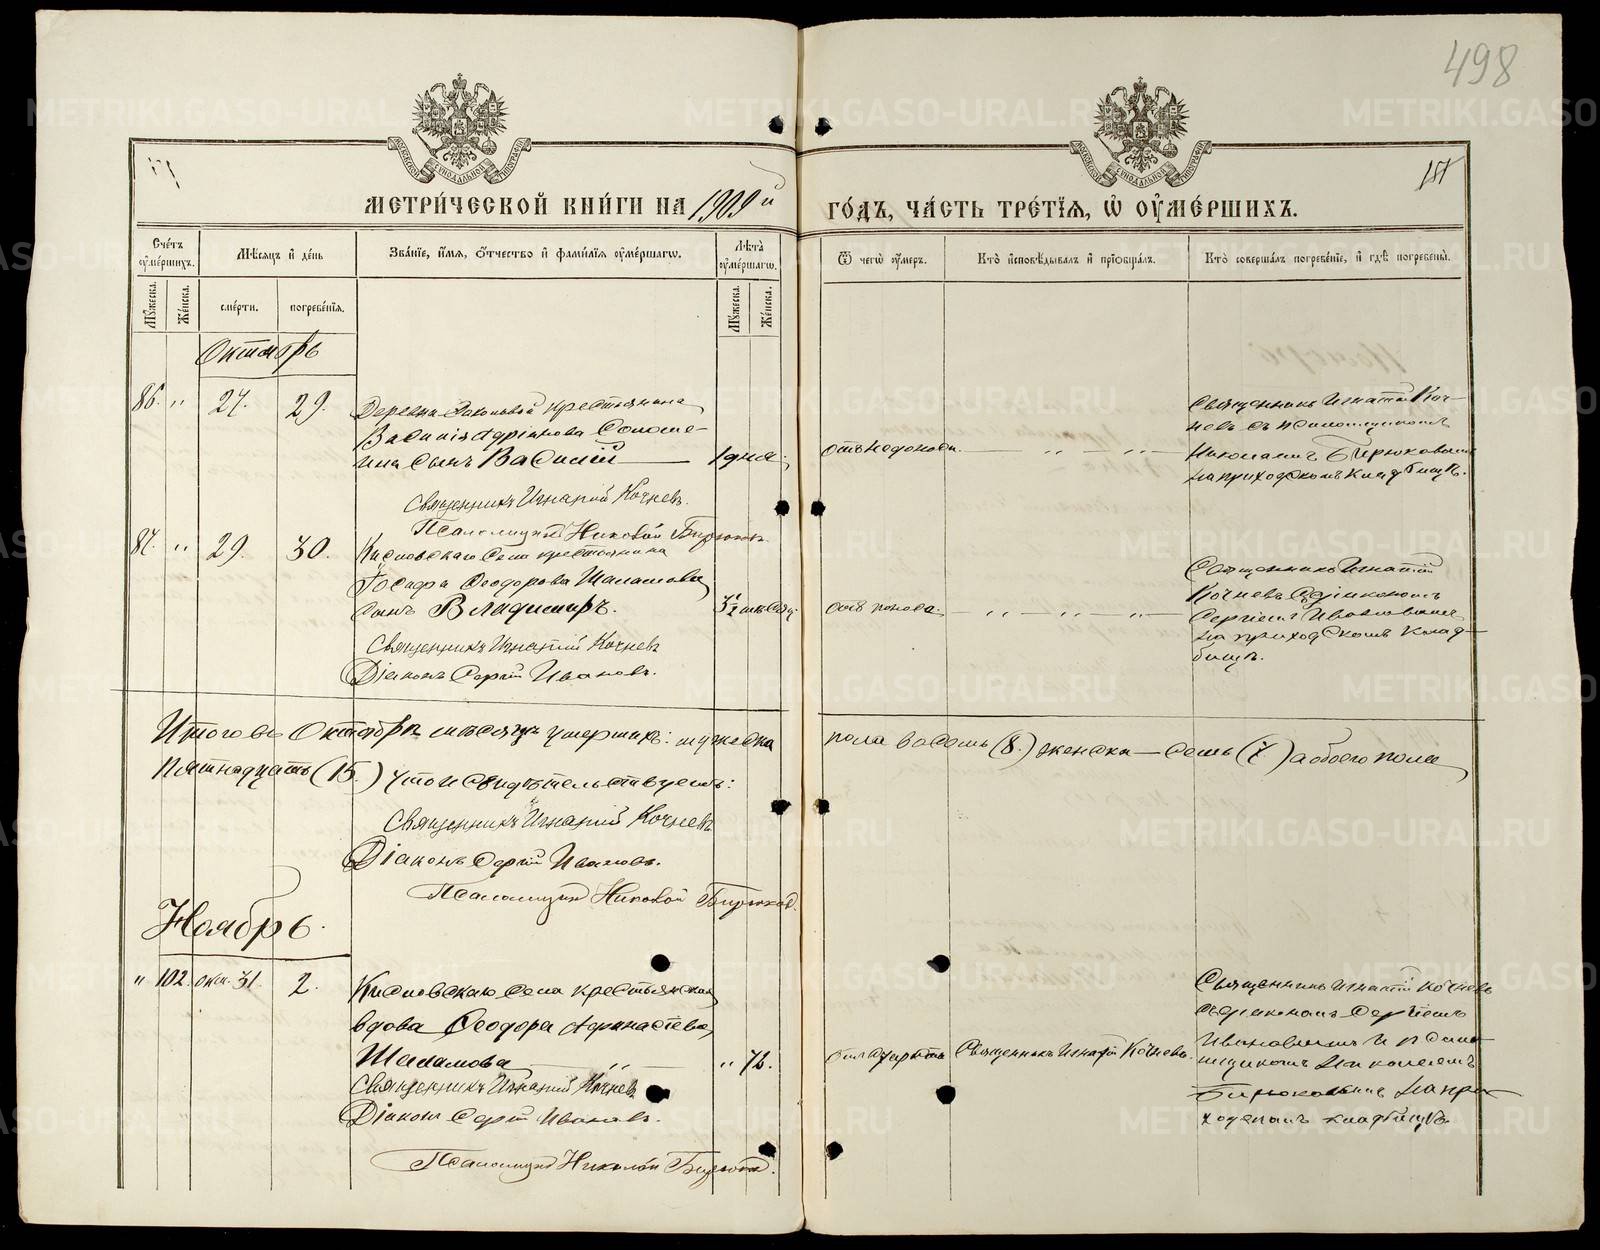 498
187
МЕТРИЧЕСКОЙ КНИГИ НА 1909 й ГОДЪ, ЧАСТЬ ТРЕТІЯ, Ѿ ОУМЕРШИХЪ.
Счетъ оумершихъ.
Мѣсяцъ и день
Званіе, имя, отчество и фамилія оумершагѡ.
Лѣта оумершагѡ.
Ѿ чегѡ оумеръ.
Кто исповѣдывалъ и пріобщалъ.
Кто совершалъ погребеніе, и гдѣ погребены.
Мужеска.
Женска.
смерти.
погребенія.
Мужеска.
Женска.
Октябрь
86. " 27. 29. Деревни крестьянина
Василія Адріанова
сынъ Василій 1 дня.
Священникъ Игнатій Кочневъ.
Псаломщикъ Николай Бирюковъ.
Священникъ Игнатій Коч-
невъ съ псаломщикомъ
Николаемъ Бирюковымъ
на приходскомъ кладбищѣ.
87. " 29. 30. Кисловскаго села крестьянина
Іосифа Ѳеодорова Шаламова
сынъ Владимиръ. 3½ мѣсяц.
отъ поноса.
Священникъ Игнатій Кочневъ
Діаконъ Сергій Ивановъ.
Священникъ Игнатій
Кочневъ съ діакономъ
Сергіемъ Ивановымъ
на приходскомъ клад-
бищѣ.
Итого въ Октябрѣ мѣсяцѣ умершихъ: мужеска пола восемь (8.) женска — семь (7.) а обоего пола
пятнадцать (15.) Что и свидѣтельствуемъ:
Священникъ Игнатій Кочневъ
Діаконъ Сергій Ивановъ.
Псаломщикъ Николай Бирюков.
Ноябрь.
" 102. окт. 31. 2. Кисловскаго села крестьянская
вдова Ѳеодора Афанасіева
Шаламова " 72.
отъ старости Священникъ Игнатій Кочневъ.
Священникъ Игнатій Кочневъ
Діаконъ Сергій Ивановъ.
Псаломщикъ Николай Бирюков.
Священникъ Игнатій Кочневъ
съ діакономъ Сергіемъ
Ивановымъ и псалом-
щикомъ Николаемъ
Бирюковымъ на при-
ходскомъ кладбищѣ.
METRIKI.GASO-URAL.RU